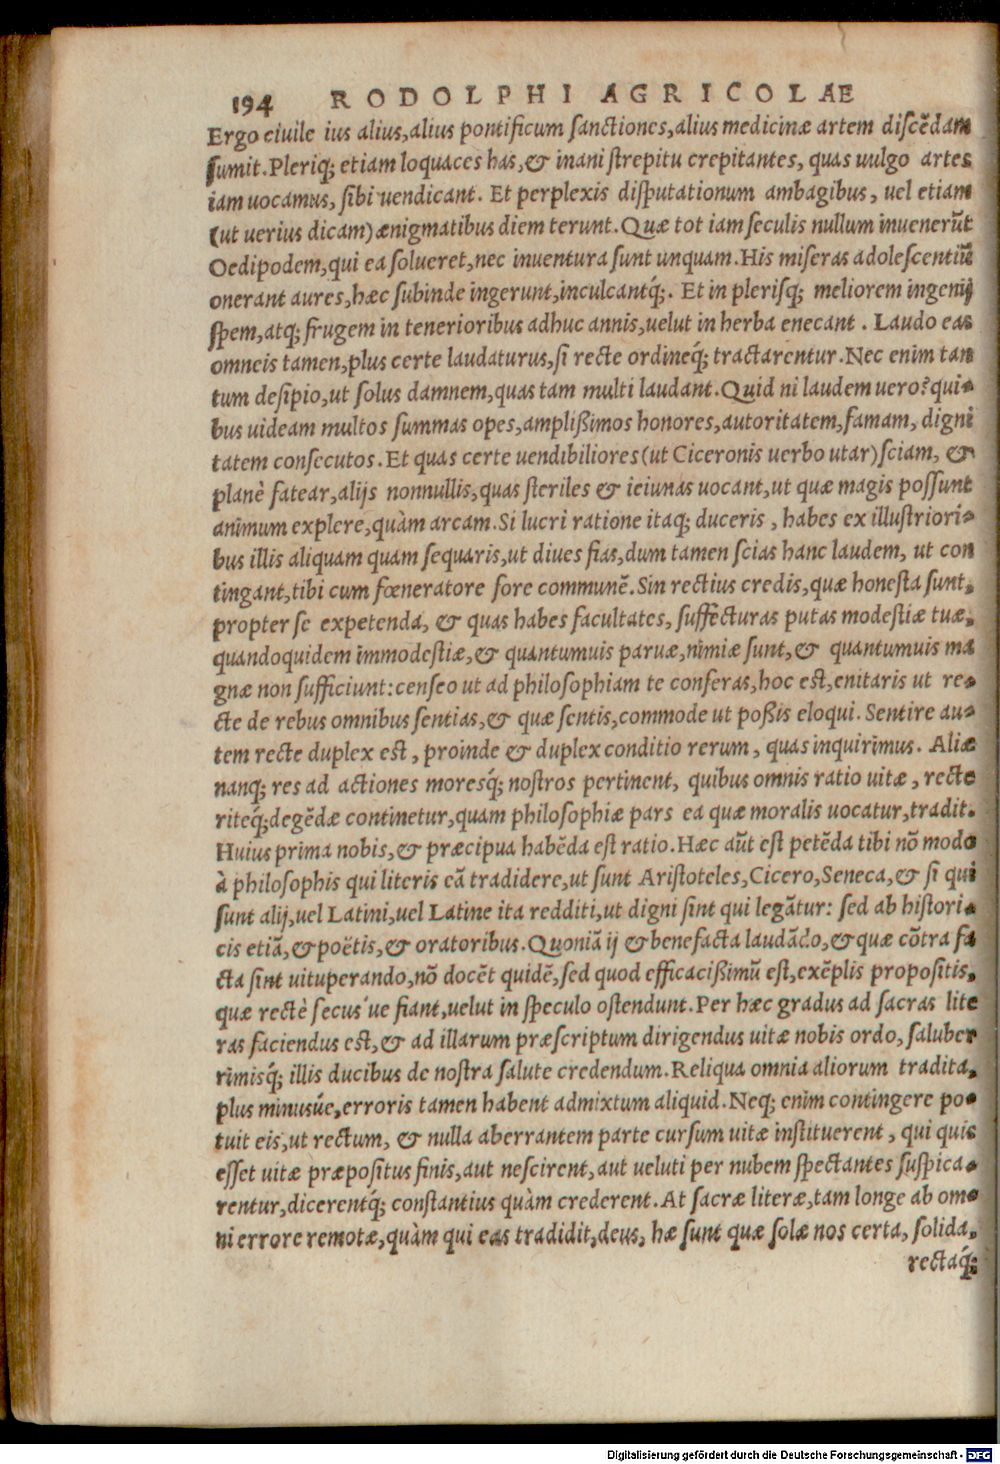 194 RODOLPHI AGRICOLAE
Ergo ciuile ius alius, alius pontificum sanctiones, alius medicinæ artem discēdam
sumit. Pleriq; etiam loquaces has, & inani strepitu crepitantes, quas uulgo artes
iam uocamus, sibi uendicant. Et perplexis disputationum ambagibus, uel etiam
(ut uerius dicam) ænigmatibus diem terunt. Quæ tot iam seculis nullum inuenerūt
Oedipodem, qui ea solueret, nec inuentura sunt unquam. His miseras adolescentiū
onerant aures, hæc subinde ingerunt, inculcantq́;. Et in plerisq; meliorem ingenij
spem, atq; frugem in tenerioribus adhuc annis, uelut in herba enecant. Laudo eas
omneis tamen, plus certe laudaturus, si recte ordineq́; tractarentur. Nec enim tan
tum desipio, ut solus damnem, quas tam multi laudant. Quid ni laudem uero? qui-
bus uideam multos summas opes, amplißimos honores, autoritatem, famam, digni
tatem consecutos. Et quas certe uendibiliores (ut Ciceronis uerbo utar) sciam, &
planè fatear, alijs nonnullis, quas steriles & ieiunas uocant, ut quæ magis possunt
animum explere, quàm arcam. Si lucri ratione itaq; duceris, habes ex illustriori-
bus illis aliquam quam sequaris, ut diues fias, dum tamen scias hanc laudem, ut con
tingant, tibi cum fœneratore fore communē. Sin rectius credis, quæ honesta sunt,
propter se expetenda, & quas habes facultates, suffecturas putas modestiæ tuæ,
quandoquidem immodestiæ, & quantumuis paruæ, nimiæ sunt, & quantumuis ma
gnæ non sufficiunt: censeo ut ad philosophiam te conferas, hoc est, enitaris ut re-
cte de rebus omnibus sentias, & quæ sentis, commode ut poßis eloqui. Sentire au-
tem recte duplex est, proinde & duplex conditio rerum, quas inquirimus. Aliæ
nanq; res ad actiones moresq́; nostros pertinent, quibus omnis ratio uitæ, recte
riteq́; degēdæ continetur, quam philosophiæ pars ea quæ moralis uocatur, tradit.
Huius prima nobis, & præcipua habēda est ratio. Hæc aūt est petēda tibi nō modo
à philosophis qui literis eā tradidere, ut sunt Aristoteles, Cicero, Seneca, & si qui
sunt alij, uel Latini, uel Latine ita redditi, ut digni sint qui legātur: sed ab histori-
cis etiā, & poëtis, & oratoribus. Quoniā ij & benefacta laudādo, & quæ cōtra fa
cta sint uituperando, nō docēt quidē, sed quod efficacißimū est, exēplis propositis,
quæ rectè secus ́ue fiant, uelut in speculo ostendunt. Per hæc gradus ad sacras lite
ras faciendus est, & ad illarum præscriptum dirigendus uitæ nobis ordo, saluber
rimisq́; illis ducibus de nostra salute credendum. Reliqua omnia aliorum tradita,
plus minusúe, erroris tamen habent admixtum aliquid. Neq; enim contingere po-
tuit eis, ut rectum, & nulla aberrantem parte cursum uitæ instituerent, qui quis
esset uitæ præpositus finis, aut nescirent, aut ueluti per nubem spectantes suspica-
rentur, dicerentq́; constantius quàm crederent. At sacræ literæ, tam longe ab om-
ni errore remotæ, quàm qui eas tradidit, deus, hæ sunt quæ solæ nos certa, solida,
rectaq́;
Digitalisierung gefördert durch die Deutsche Forschungsgemeinschaft - DFG